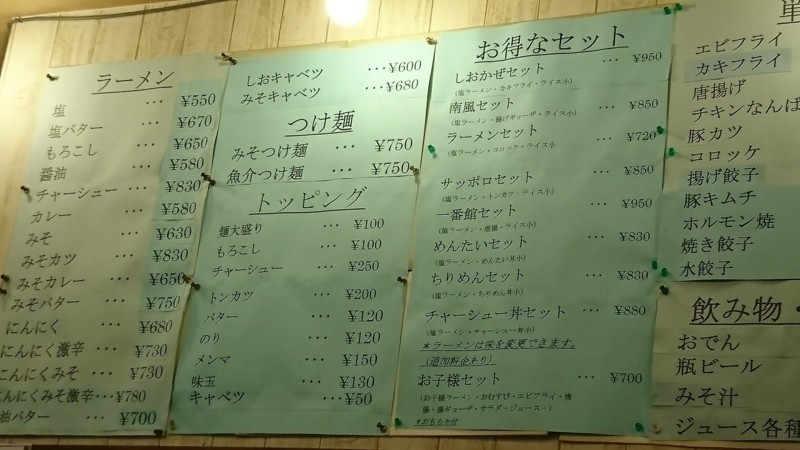 ラーメン
塩 ・・・ ¥550
塩バター ・・・ ¥670
もろこし ・・・ ¥650
醤油 ・・・ ¥580
チャーシュー ・・・ ¥830
カレー ・・・ ¥580
みそ ・・・ ¥630
みそカツ ・・・ ¥830
みそカレー ・・・ ¥650
みそバター ・・・ ¥750
にんにく ・・・ ¥680
にんにく激辛 ・・・ ¥730
にんにくみそ ・・・ ¥730
んにくみそ激辛・・・ ¥780
油バター ・・・ ¥700
しおキャベツ ・・・¥600
みそキャベツ ・・・¥680
つけ麺
みそつけ麺 ・・・ ¥750
魚介つけ麺 ・・・ ¥750
トッピング
麺大盛り ・・・ ¥100
もろこし ・・・ ¥100
チャーシュー ・・・ ¥250
トンカツ ・・・ ¥200
バター ・・・ ¥120
のり ・・・ ¥120
メンマ ・・・ ¥150
味玉 ・・・ ¥130
キャベツ ・・・ ¥50
お得なセット
しおかぜセット ・・・ ¥950
(塩ラーメン・カキフライ・ライス小)
南風セット ・・・ ¥850
(塩ラーメン・揚げギョーザ・ライス小)
ラーメンセット ・・・ ¥720
(塩ラーメン・コロッケ・ライス小
サッポロセット ・・・ ¥850
(塩ラーメン・トンカツ・ライス小)
一番館セット ・・・ ¥950
(塩ラーメン・唐揚・ライス小)
めんたいセット ・・・ ¥830
(塩ラーメン・めんたい丼小)
ちりめんセット ・・・ ¥830
(塩ラーメン・ちりめん丼小)
チャーシュー丼セット ・・・ ¥880
(塩ラーメン・チャーシュー丼小)
*ラーメンは味を変更できます。
(追加料金あり)
お子様セット ・・・ ¥700
(お子様ラーメン・おむすび・エビフライ・唐
揚・揚ギョーザ・サラダ・ジュース・)
*おもちゃ付
単
エビフライ
カキフライ
唐揚げ
チキンなんば
豚カツ
コロッケ
揚げ餃子
豚キムチ
ホルモン焼
焼き餃子
水餃子
飲み物・
おでん
瓶ビール
みそ汁
ジュース各種